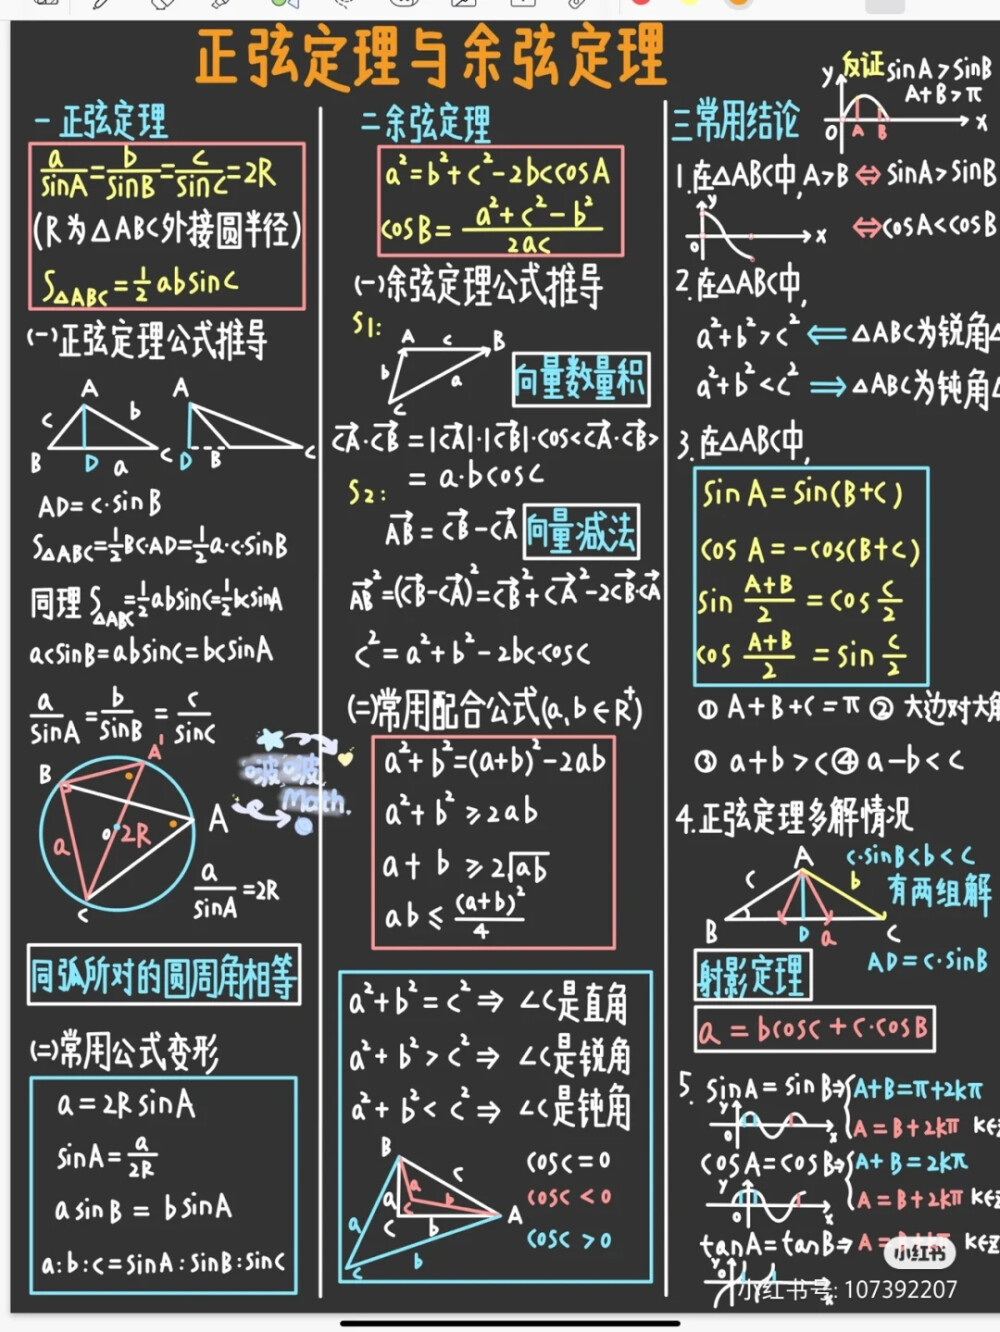 正弦定理与余弦定理
一 正弦定理
a/sinA=b/sinB=c/sinC=2R
(R为△ABC外接圆半径)
S△ABC=½absinC
(一)正弦定理公式推导
A
c
b
B
D
a
C
A
D
B
C
AD=c·sinB
S△ABC=½BC·AD=½a·c·sinB
同理 S△ABC=½absinC=½bcsinA
acsinB=absinC=bcsinA
a/sinA=b/sinB=c/sinC
B
A'
A
a
o
2R
C
a/sinA=2R
同弧所对的圆周角相等
(二)常用公式变形
a=2RsinA
sinA=a/2R
asinB=bsinA
a:b:c=sinA:sinB:sinC
啵啵
Math.
二 余弦定理
a²=b²+c²-2bccosA
cosB=(a²+c²-b²)/2ac
(一)余弦定理公式推导
S1:
A
c
B
b
a
C
向量数量积
CA·CB=|CA|·|CB|·cos<CA·CB>
=a·bcosC
S2:
AB=CB-CA
向量减法
AB²=(CB-CA)²=CB²+CA²-2CB·CA
c²=a²+b²-2bc·cosc
(二)常用配合公式(a,b∈R⁺)
a²+b²=(a+b)²-2ab
a²+b²≥2ab
a+b≥2√ab
ab≤(a+b)²/4
a²+b²=c²⇒∠C是直角
a²+b²>c²⇒∠C是锐角
a²+b²<c²⇒∠C是钝角
B
c
a
a
C
b
b
A
a
C
b
C
cosc=0
cosc<0
cosc>0
三 常用结论
y
反证 sinA>sinB
A+B>π
o
A
B
x
1.在△ABC中,A>B⇔sinA>sinB
⇔cosA<cosB
y
o
x
2.在△ABC中,
a²+b²>c²⇐△ABC为锐角△
a²+b²<c²⇒△ABC为钝角△
3.在△ABC中,
sinA=sin(B+C)
cosA=-cos(B+C)
sin (A+B)/2=cos C/2
cos (A+B)/2=sin C/2
①A+B+C=π ②大边对大角
③a+b>c ④a-b<c
4.正弦定理多解情况
A
c·sinB<b<c
有两组解
c
b
B
D
a
C
AD=c·sinB
射影定理
a=bcosC+c·cosB
5. sinA=sinB⇒{A+B=π+2kπ
A=B+2kπ k∈z
y
o
x
cosA=cosB⇒{A+B=2kπ
A=B+2kπ k∈z
y
o
x
tanA=tanB⇒A=B+kπ k∈z
y
o
x
小红书
小红书号: 107392207